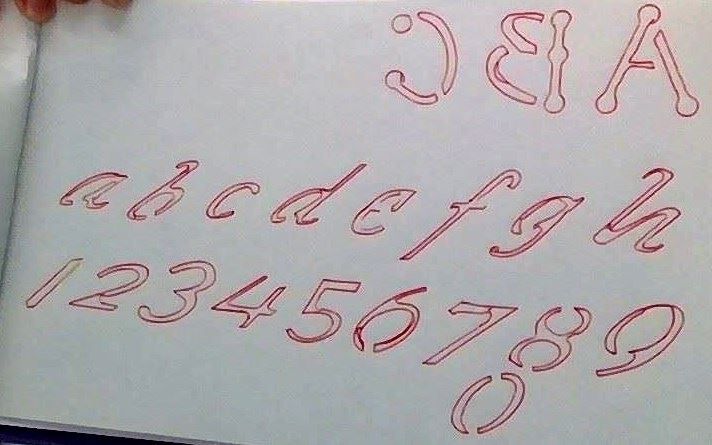 ABC
a b c d e f g h
1 2 3 4 5 6 7 8 9
0